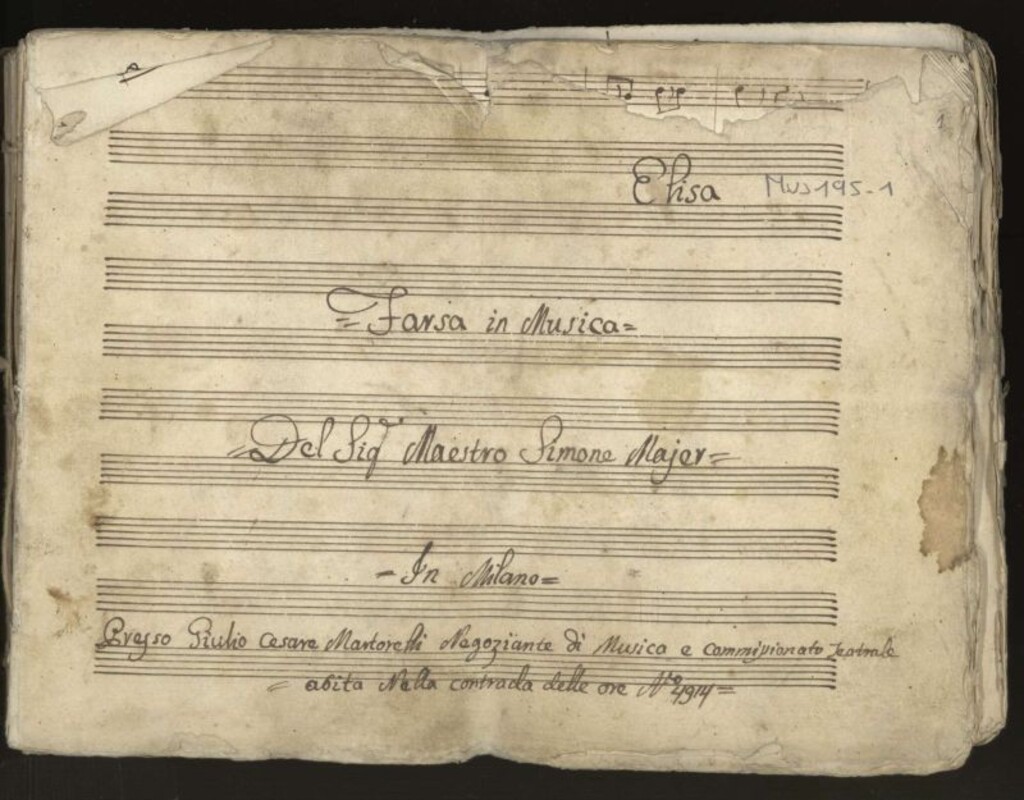 1
Elisa Mus 195-1
= Farsa in Musica =
= Del Sig.r Maestro Simone Majer =
- In Milano =
Presso Giulio Cesare Martorelli Negoziante di Musica e Commissionato Teatrale
= abita Nella contrada delle ore N.o 4914 =